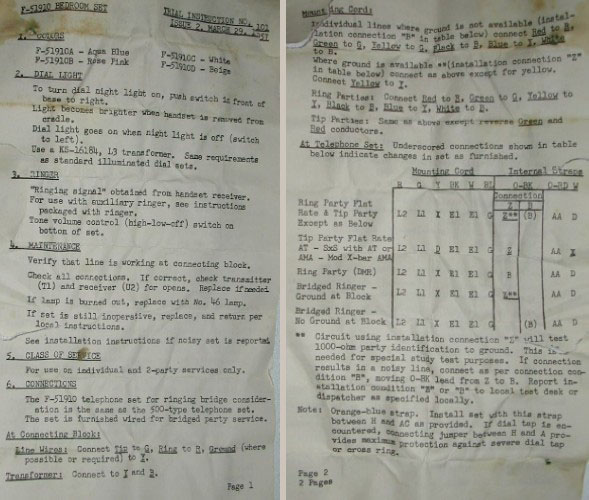 F-51910 BEDROOM SET
TRIAL INSTRUCTION NO. 101
ISSUE 2, MARCH 29,
1. 
F-51910A - Aqua Blue
F-51910C - White
F-51910B - Rose Pink
F-51910D - Beige
2. DIAL LIGHT
To turn dial night light on, push switch in front of
base to right.
Light becomes brighter when handset is removed from
cradle.
Dial light goes on when night light is off (switch
to left).
Use a KS-16184, L3 transformer. Same requirements
as standard illuminated dial sets.
3. RINGER
"Ringing signal" obtained from handset receiver.
For use with auxiliary ringer, see instructions
packaged with ringer.
Tone volume control (high-low-off) switch on
bottom of set.
4. MAINTENANCE
Verify that line is working at connecting block.
Check all connections. If correct, check transmitter
(T1) and receiver (U2) for opens. Replace if needed
If lamp is burned out, replace with No. 46 lamp.
If set is still inoperative, replace, and return per
local instructions.
See installation instructions if noisy set is reported
5. CLASS OF SERVICE
For use on individual and 2-party services only.
6. CONNECTIONS
The F-51910 telephone set for ringing bridge consider-
ation is the same as the 500-type telephone set.
The set is furnished wired for bridged party service.
At Connecting Block:
Line Wires: Connect Tip to G, Ring to R, Ground (where
possible or required) to Y.
Transformer: Connect to Y and B.
Page 1
Mounting Cord:
Individual lines where ground is not available (instal-
lation connection "B" in table below) connect Red to R,
Green to G, Yellow to G, Black to B, Blue to Y, White
to B.
Where ground is available **(installation connection "Z"
in table below) connect as above except for yellow.
Connect Yellow to Y.
Ring Parties: Connect Red to R, Green to G, Yellow to
Y, Black to B, Blue to Y, White to B.
Tip Parties: Same as above except reverse Green and
Red conductors.
At Telephone Set: Underscored connections shown in table
below indicate changes in set as furnished.
Mounting Cord Internal Straps
R G Y BK W BL O-BK O-RD W
Connection
Z B
Ring Party Flat
Rate & Tip Party L2 L1 Y E1 E1 G Z** (B) AA D
Except as Below
Tip Party Flat Rate
AT - SxS with AT or L2 L1 D E1 E1 G Z AA Y
AMA - Mod X-bar AMA
Ring Party (DMR) L2 L1 Y E1 E1 G B AA D
Bridged Ringer -
Ground at Block L2 L1 X E1 E1 G Z** AA D
Bridged Ringer -
No Ground at Block L2 L1 X E1 E1 G (B) AA D
** Circuit using installation connection "Z" will test
1000-ohm party identification to ground. This is
needed for special study test purposes. If connection
results in a noisy line, connect as per connection con-
dition "B", moving O-BK lead from Z to B. Report in-
stallation condition "Z" or "B" to local test desk or
dispatcher as specified locally.
Note: Orange-blue strap. Install set with this strap
between H and AC as provided. If dial tap is en-
countered, connecting jumper between H and A pro-
vides maximum protection against severe dial tap
or cross ring.
Page 2
2 Pages